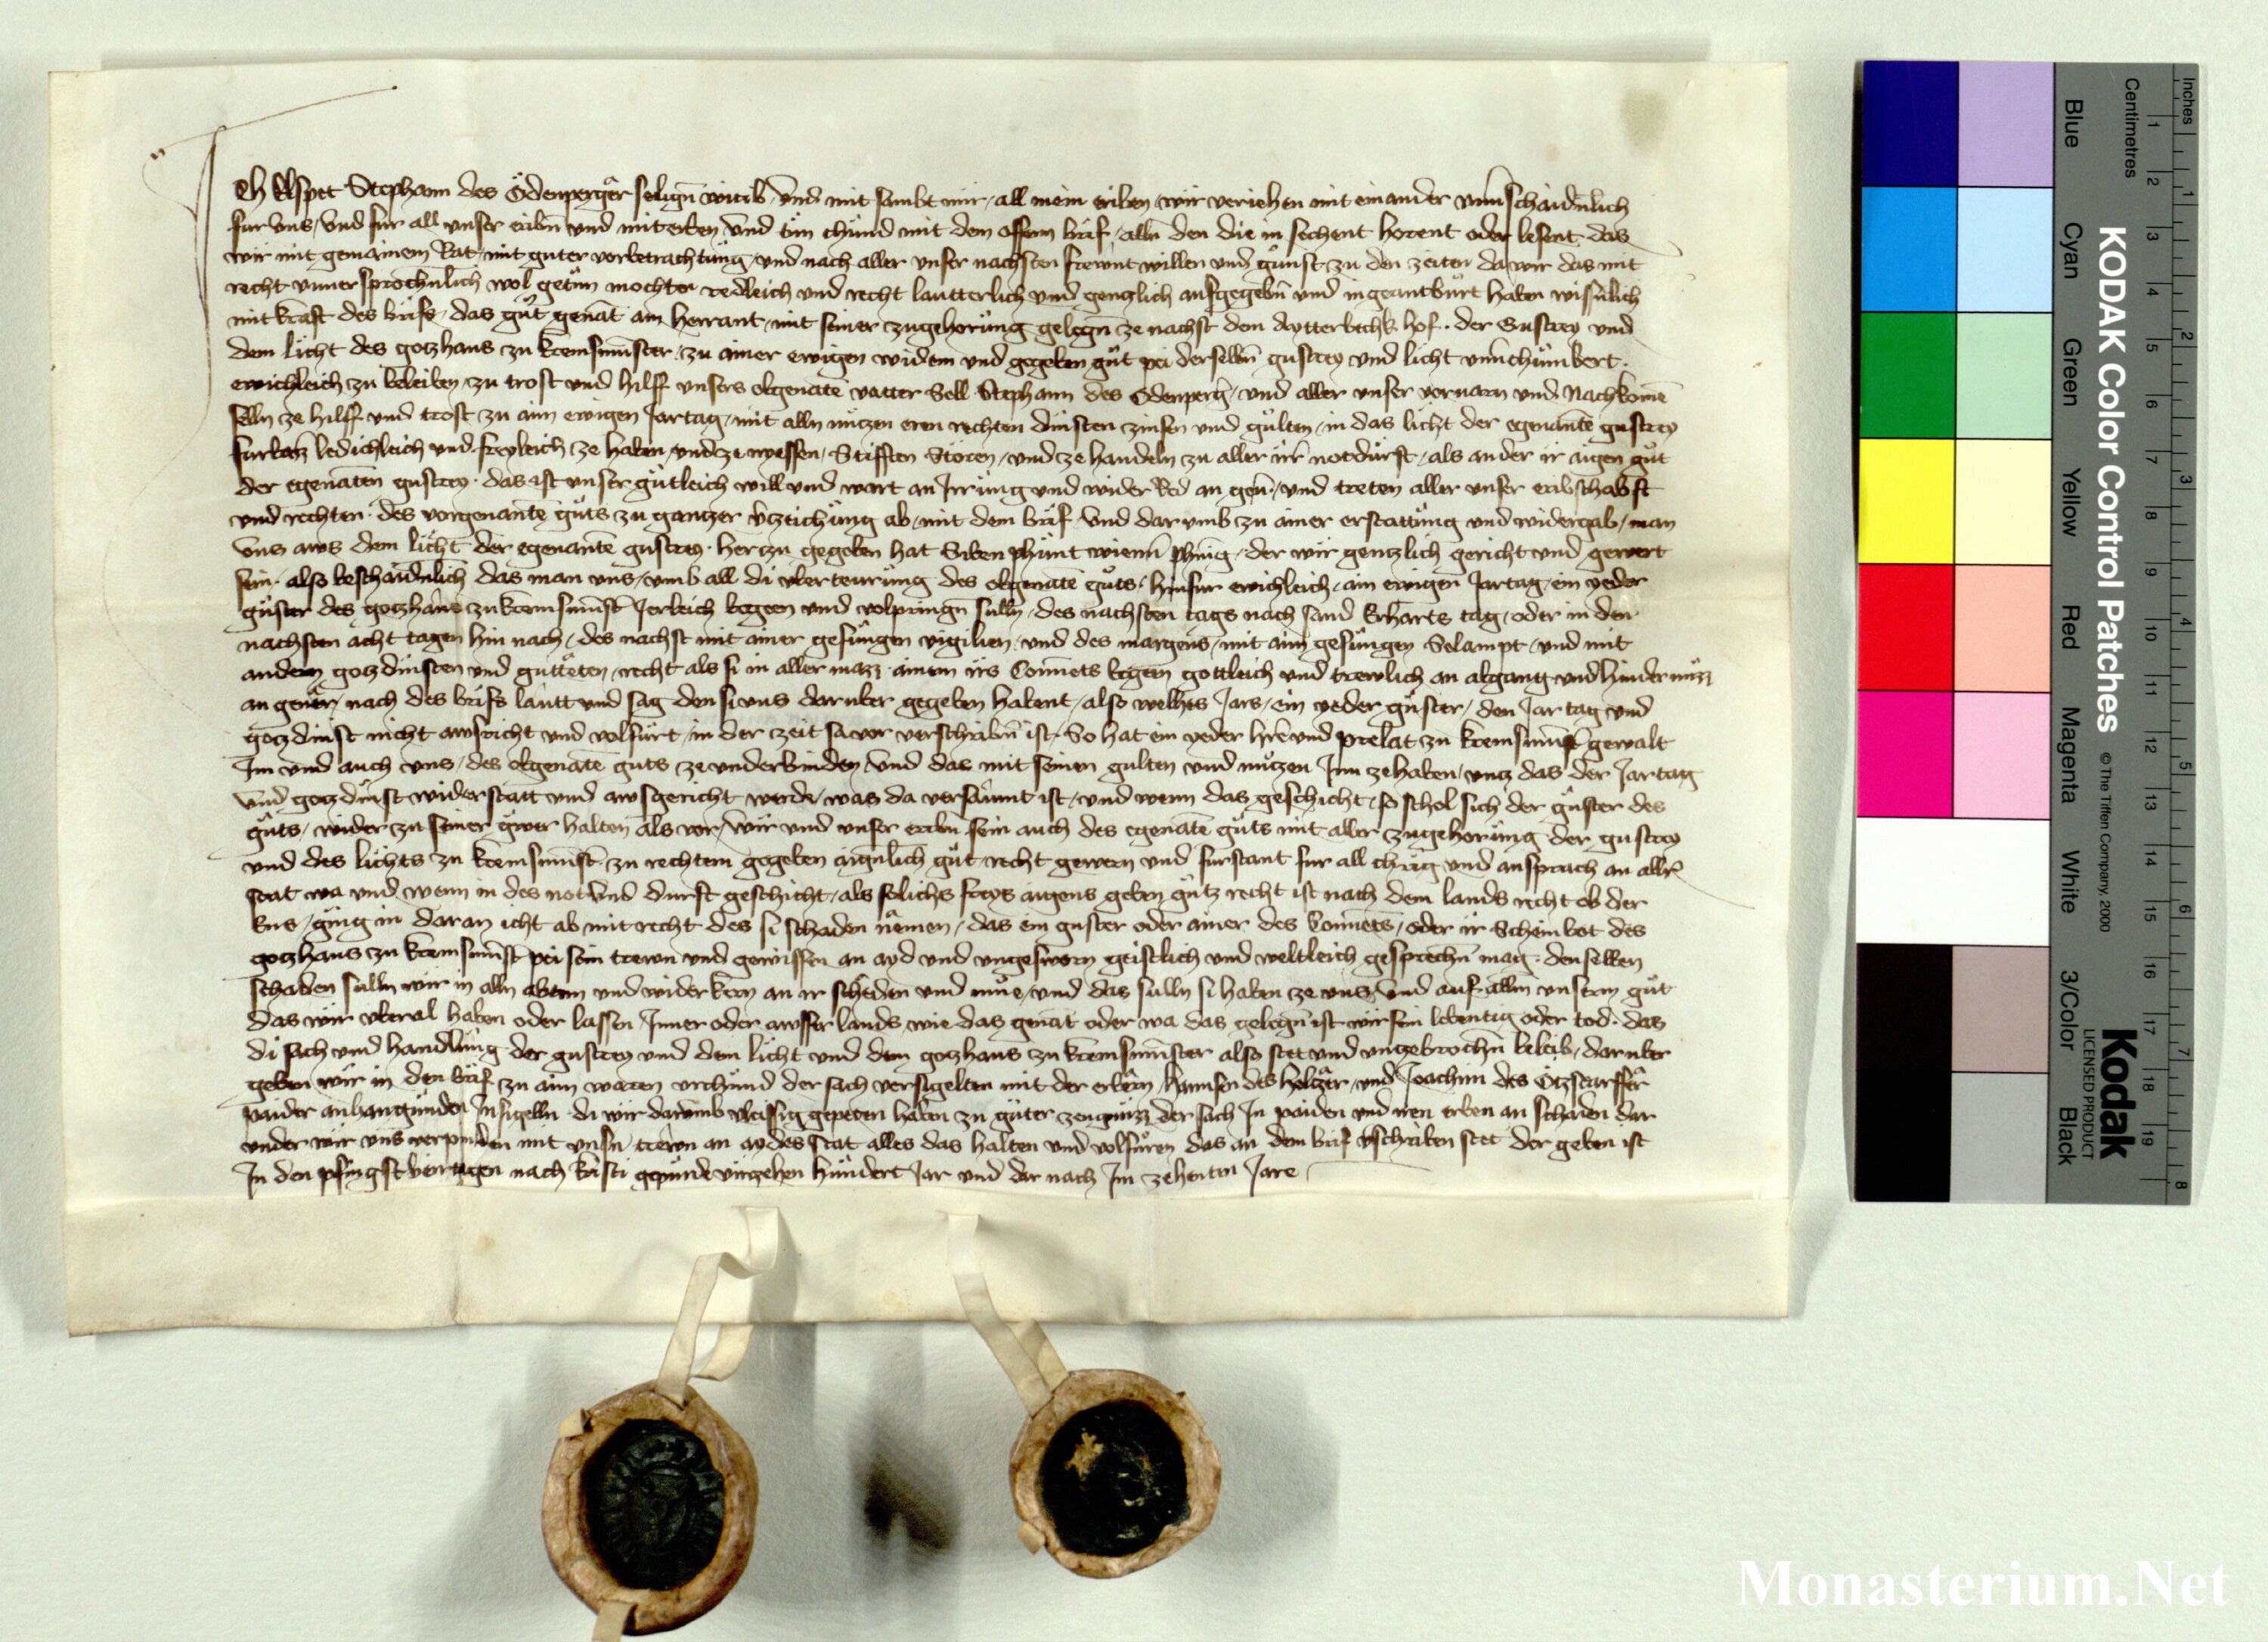 Ich Elspet Stephann des Ödenperger seligen witib und mit sambt mir all mein eriben wir veriehen mit einander unuerschaidenlich
fur uns und fur all unser eribn und miteriben und tun chund mit dem offenn brif allen den die in sechent horent oder lesent das
wir mit gemainem Rat mit guter vorbetrachtung und nach aller unser nachsten frewnt willen und gunst zu den zeiten da wir das mit
recht unuersprochenlich wol getun mochten redleich und recht lautterlich und genczlich aufgegebn und ingeantburt haben wissenlich
mit kraft des brifs das gut genant am Herrant mit seiner zugehorung gelegn ze nachst dem hof der Gustrey und
dem licht des goczhaus zu kremsmunster zu ainer ewigen widem und gegeben gut pei derselben gustrey und licht unuerchumbert
ewichleich zu beleiben zu trost und hilff unsers obgenanten vatter Sell Stephann des Ödenperger und aller unser vorvarn und Nachkomen
selln ze hilff und trost zu aim ewigen Jartag mit alln nuczen eren rechten dinsten zinsen und gulten in das licht der egenanten gustrey
furbas ledichleich und freyleich ze haben und ze nyessen Stifften Stören und ze handeln zu aller irer notdurft als ander ir aigen gut
der egenanten gustrey das ist unser gutleich will und wart an Irrung und wider Red an geuer und treten aller unser eribschabft
und rechten des vorgenanten guts zu ganczer verczeichung ab mit dem brif und dar umb zu ainer erstattung und widergab man
uns aus dem licht der egenanten gustrey herczu gegeben hat Siben phunt wienner phenning der wir genczlich gericht und gewert
sein also beschaidenlich das man uns umb all di uberteurung des obgenanten guts hinfur ewichleich ain ewigen Jartag ein yeder
guster des goczhaus zu kremsmunster Jerleich begeen und volpringen sulln des nachsten tags nach sand Erharts tag oder in den
nachsten acht tagen hin nach des nachst mit ainer gesungen vigilien und des margens mit aim gesungen Selampt und mit
andern goczdinsten und guttëten recht als si in aller mazz ainem irs Convents begeen gottleich und trewlich an abgang und hindernuzz
an geuer nach des brifs lautt und sag den si uns daruber gegeben habent also welhes Jars ein yeder guster den Jartag und
goczdinst nicht awsricht und volfurt in der czeit so vor verschribn ist So hat ein yeder herr und prelat zu kremsmunster gewalt
Im und auch uns des obgenanten guts ze underbinden und das mit seinen gulten und nuczen Inn ze haben uncz das der Jartag
und goczdinst widerstatt und awsgericht werde was da versaumt ist und wenn das geschicht so schol sich der guster des
guts wider zu seiner gwer halten als vor wir und unser erben sein auch des egenanten guts mit aller zugehorung der gustrey
und des lichts zu kremsmunster zu rechtem gegeben aigenlich gut recht gewern und furstant fur all chrieg und ansprach an aller
stat wa und wenn in des not und durft geschicht als solichs freys aigens geben gutz recht ist nach dem lands recht ob der
Ens ging in daran icht ab mit recht des si schaden nämen das ein guster oder ainer des Convents oder ir Scheinbot des
goczhaus zu kremsmunster pei sein trewn und gewissen an ayd und ungesworn geistlich und weltleich gesprechen mag denselben
schaden sulln wir in alln abtun und widerkern an ir scheden und mue und das sulln si haben ze uns und auf allem unserm gut
das wir uberal haben oder lassen Inner oder awsser lands wie das genant oder wa das gelegn ist wir sein lebentig oder tod das
di sach und handlung der gustrey und dem licht und dem goczhaus zu kremsmunster also stet und unczebrochen beleib daruber
geben wir in den brif zu aim waren urchund der sach versigelten mit der erbern Hannsen des Holczer und Joachim des
paider anhangunden Insigelln di wir darumb vleissig gepeten haben zu guter zeugnuzz der sach In paiden und iren erben an schaden dar
under wir uns verpinden mit unsern trewn an aydes stat alles das halten und volfuren das an dem brif verschriben stet Der geben ist
In den pfingstveirtagen nach kristi gepurde virczehen hundert Jar und dar nach Im zehenten Jare
KODAK Color Control Patches
© The Tiffen Company, 2000
Kodak
LICENSED PRODUCT
Inches
Centimetres
Blue Cyan Green Yellow Red Magenta White 3/Color Black
1 2 3 4 5 6 7 8 9 10 11 12 13 14 15 16 17 18 19
1 2 3 4 5 6 7 8
Monasterium.Net